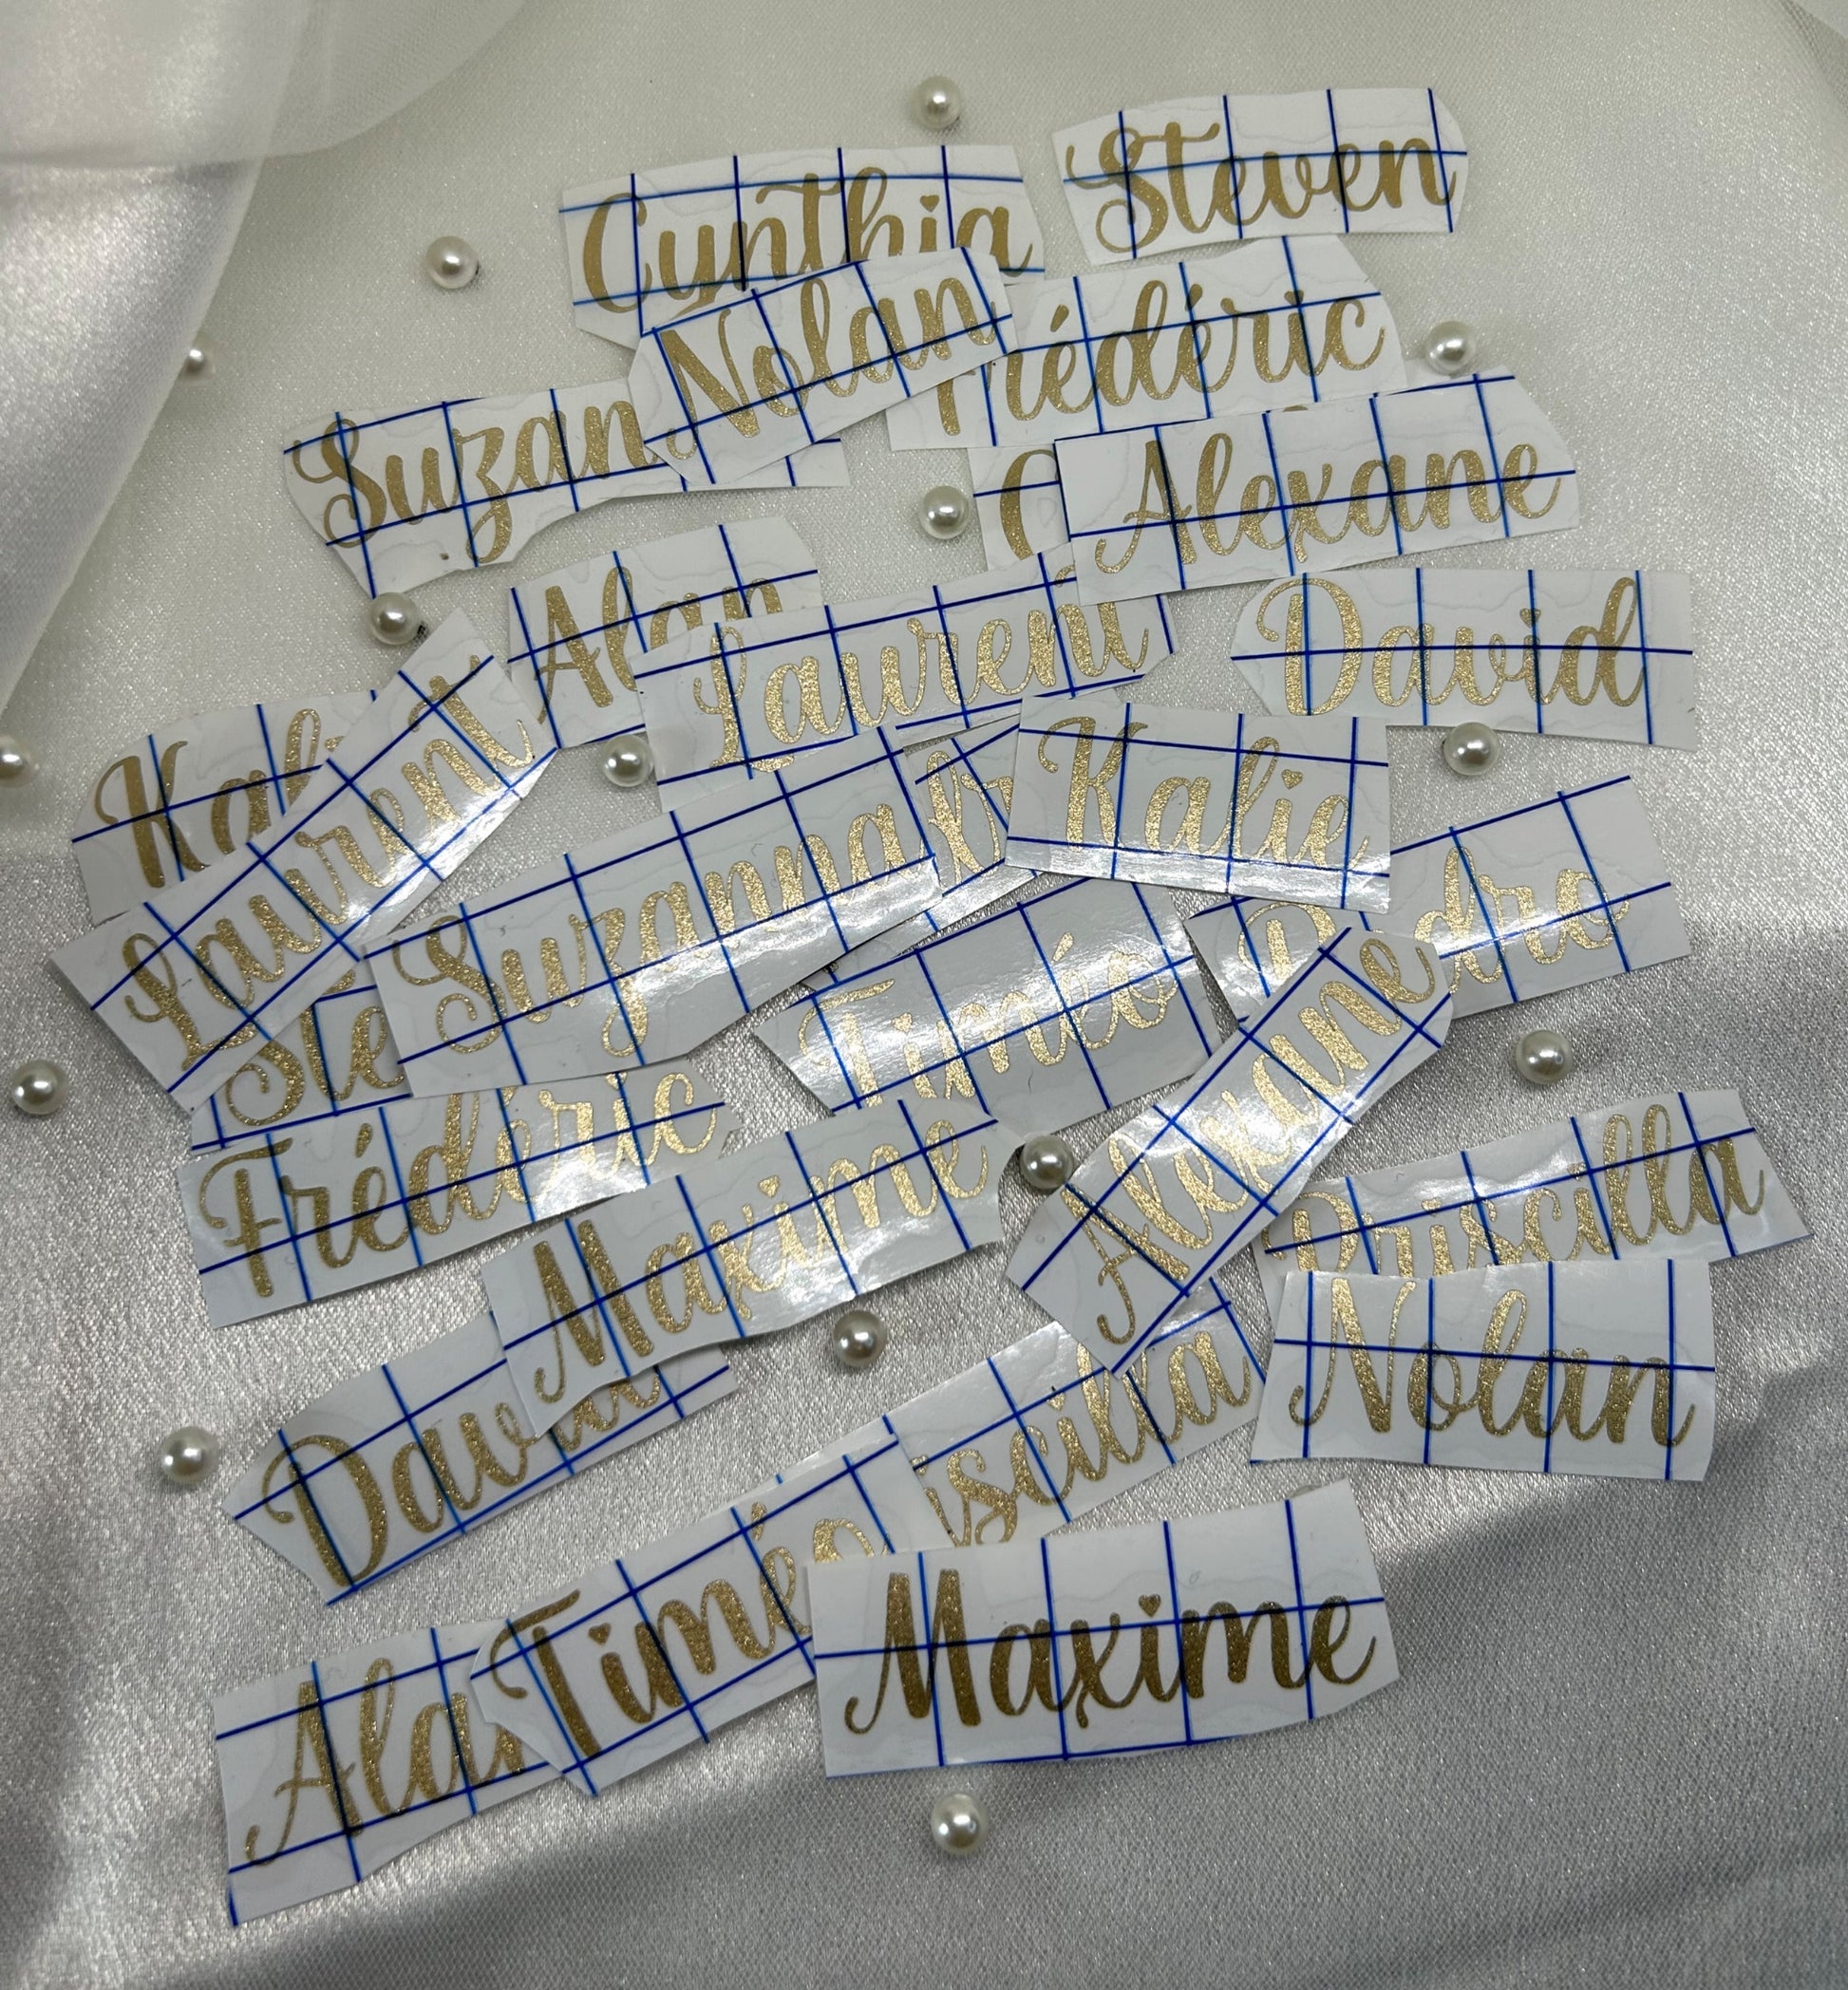 Cynthia
Steven
Nolan
rédéric
Suzan
C
Alexane
Alan
Laurent
David
Kali
Laurent
Suzanna
Kalie
dro
Timéo
Ste
Alexane
Frédéric
Maxime
Priscilla
Nolan
David
iscilla
Timéo
Maxime
Alan